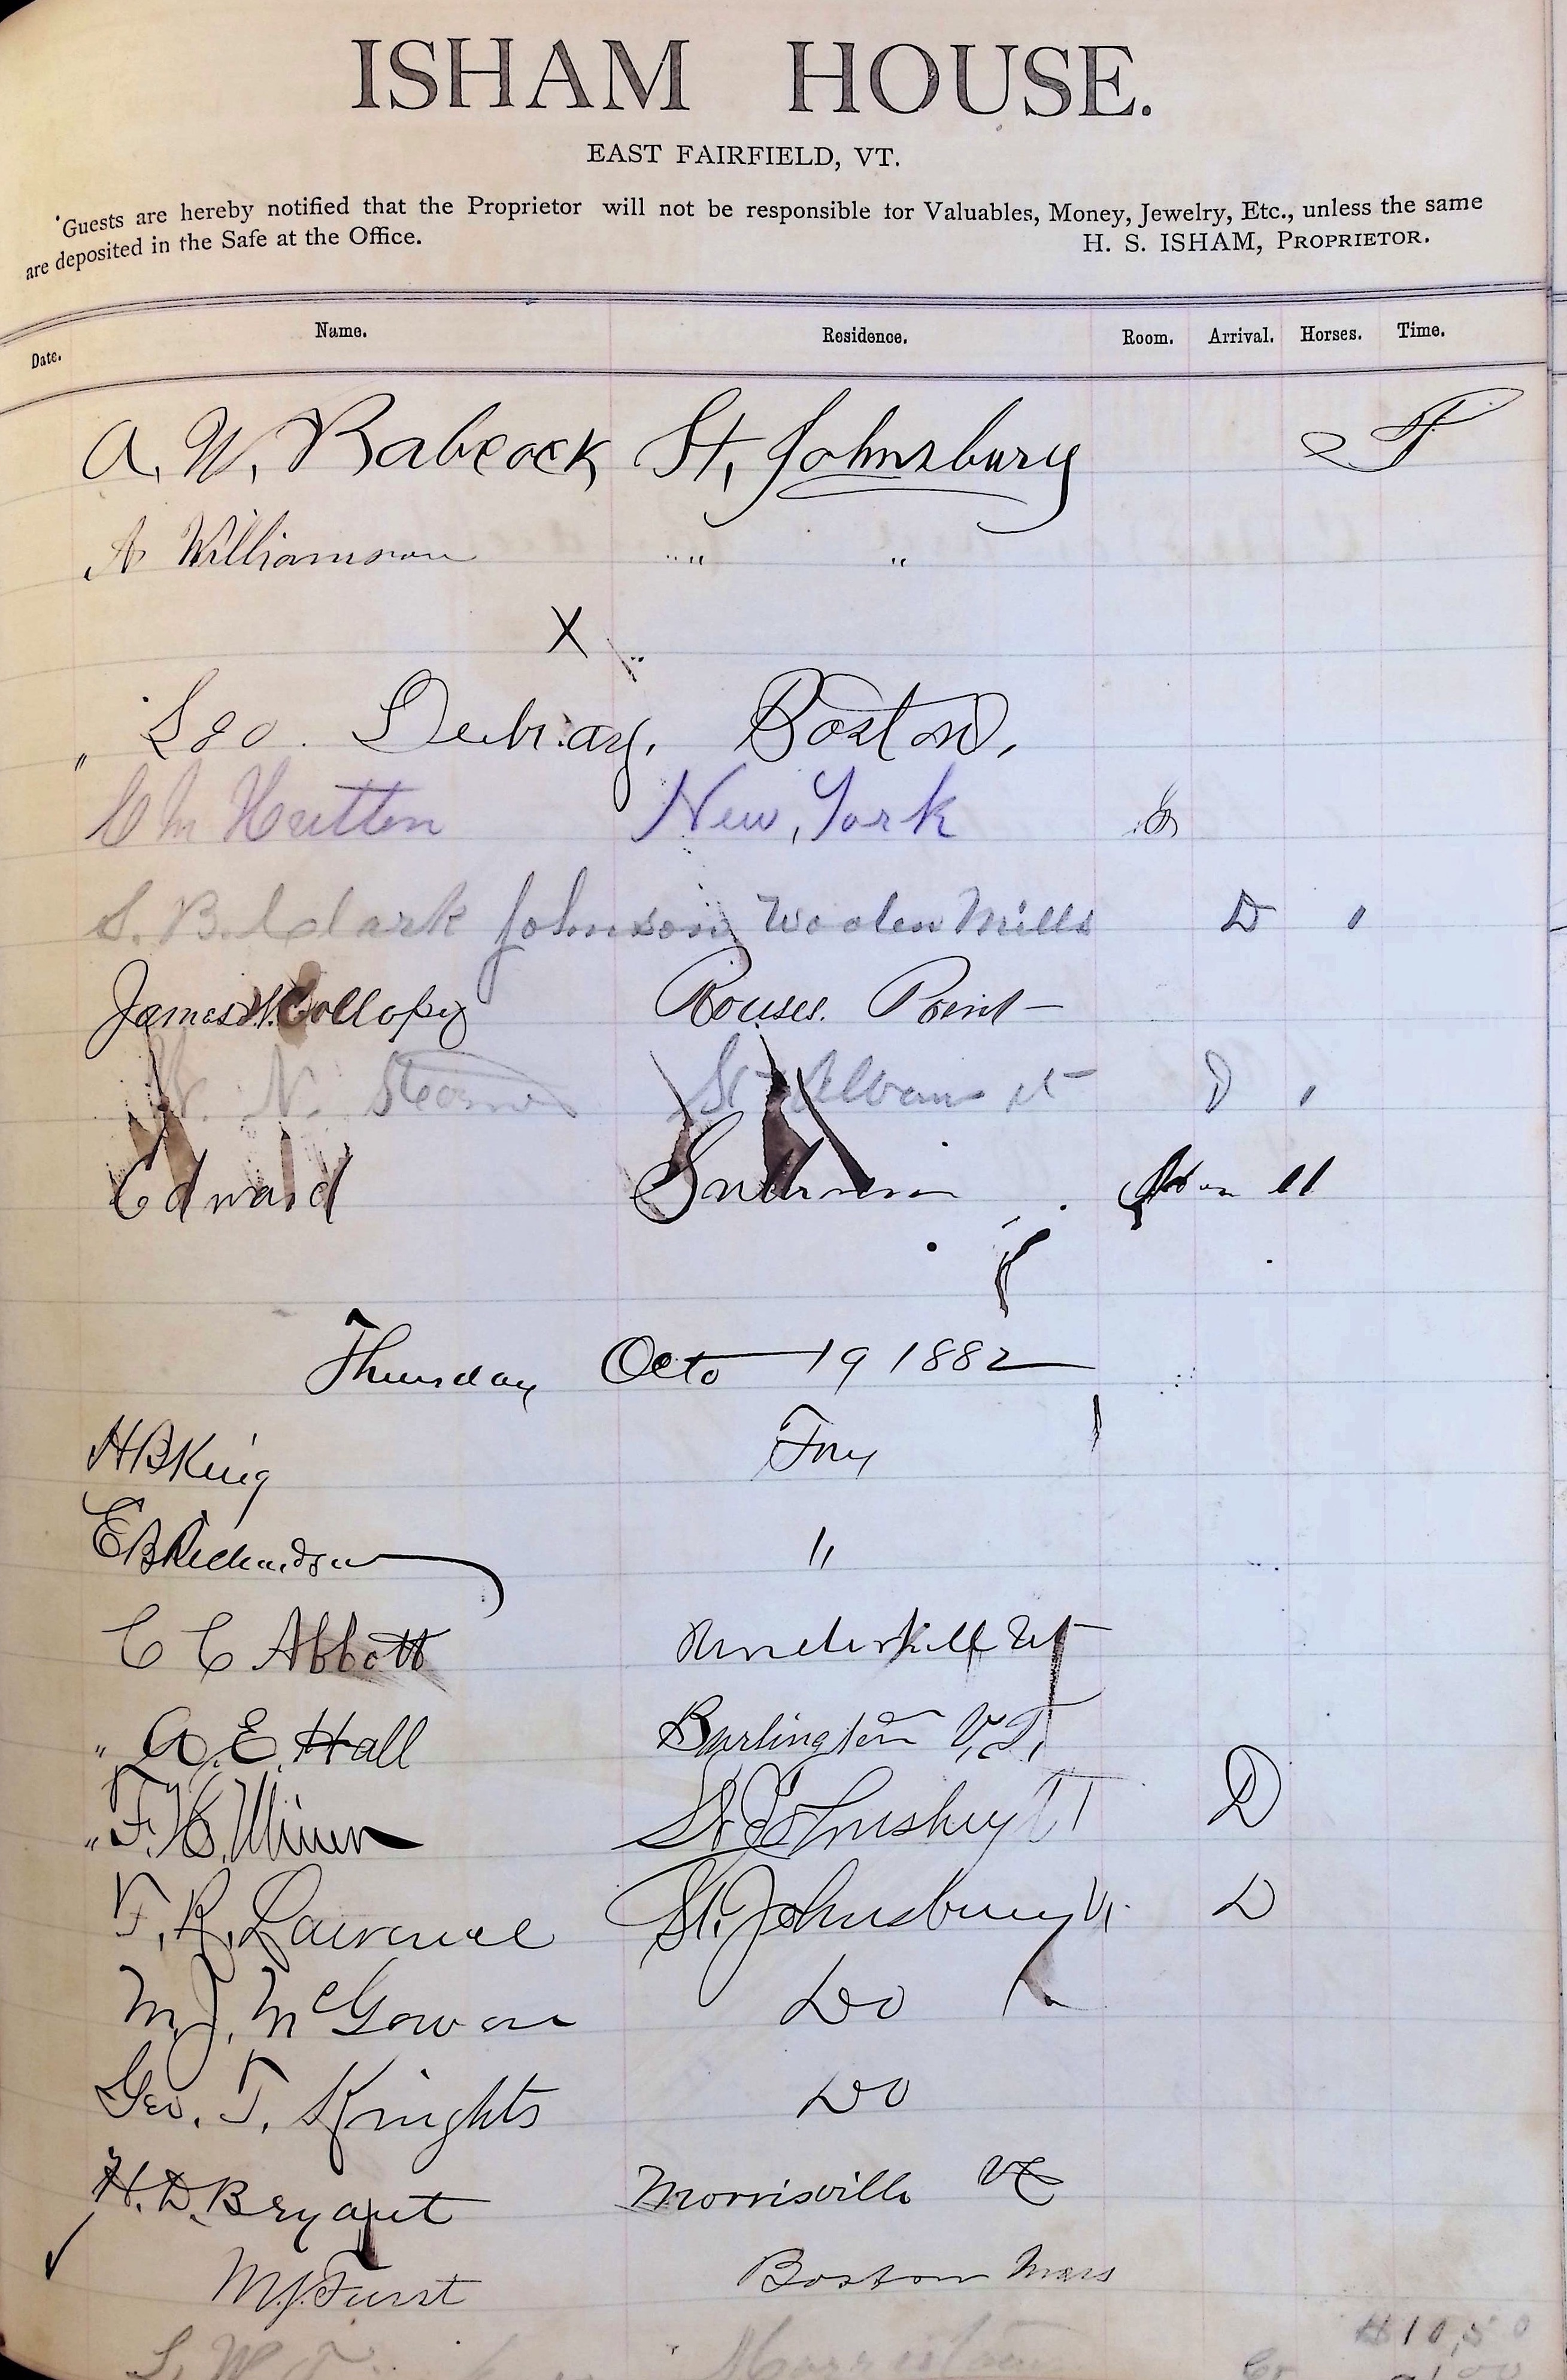 ISHAM HOUSE.
EAST FAIRFIELD, VT.
Guests are hereby notified that the Proprietor will not be responsible for Valuables, Money, Jewelry, Etc., unless the same
are deposited in the Safe at the Office. H. S. ISHAM, PROPRIETOR.
Date. Name. Residence. Room. Arrival. Horses. Time.
A. W. Babcock St, Johnsbury
A Williamson " " "
X
" Geo. Boston,
C M Hutten New York
S. B. Clark Johnson Woolen Mills D
James Collopy Rouses. Point
N. St Albans Vt D
Edward
Thursday Octo 19 1882
H B King Troy
E B Richardson "
C C Abbott Underhill Vt
" A. E. Hall Burlington V.T.
" F. Miner St Johnsbury VT D
F. R. Lawrence St. Johnsbury Vt D
M. J. McGowan Do
Geo. T. Knights Do
H. D. Bryant Morrisville Vt
M. J. Furst Boston Mass
10,50